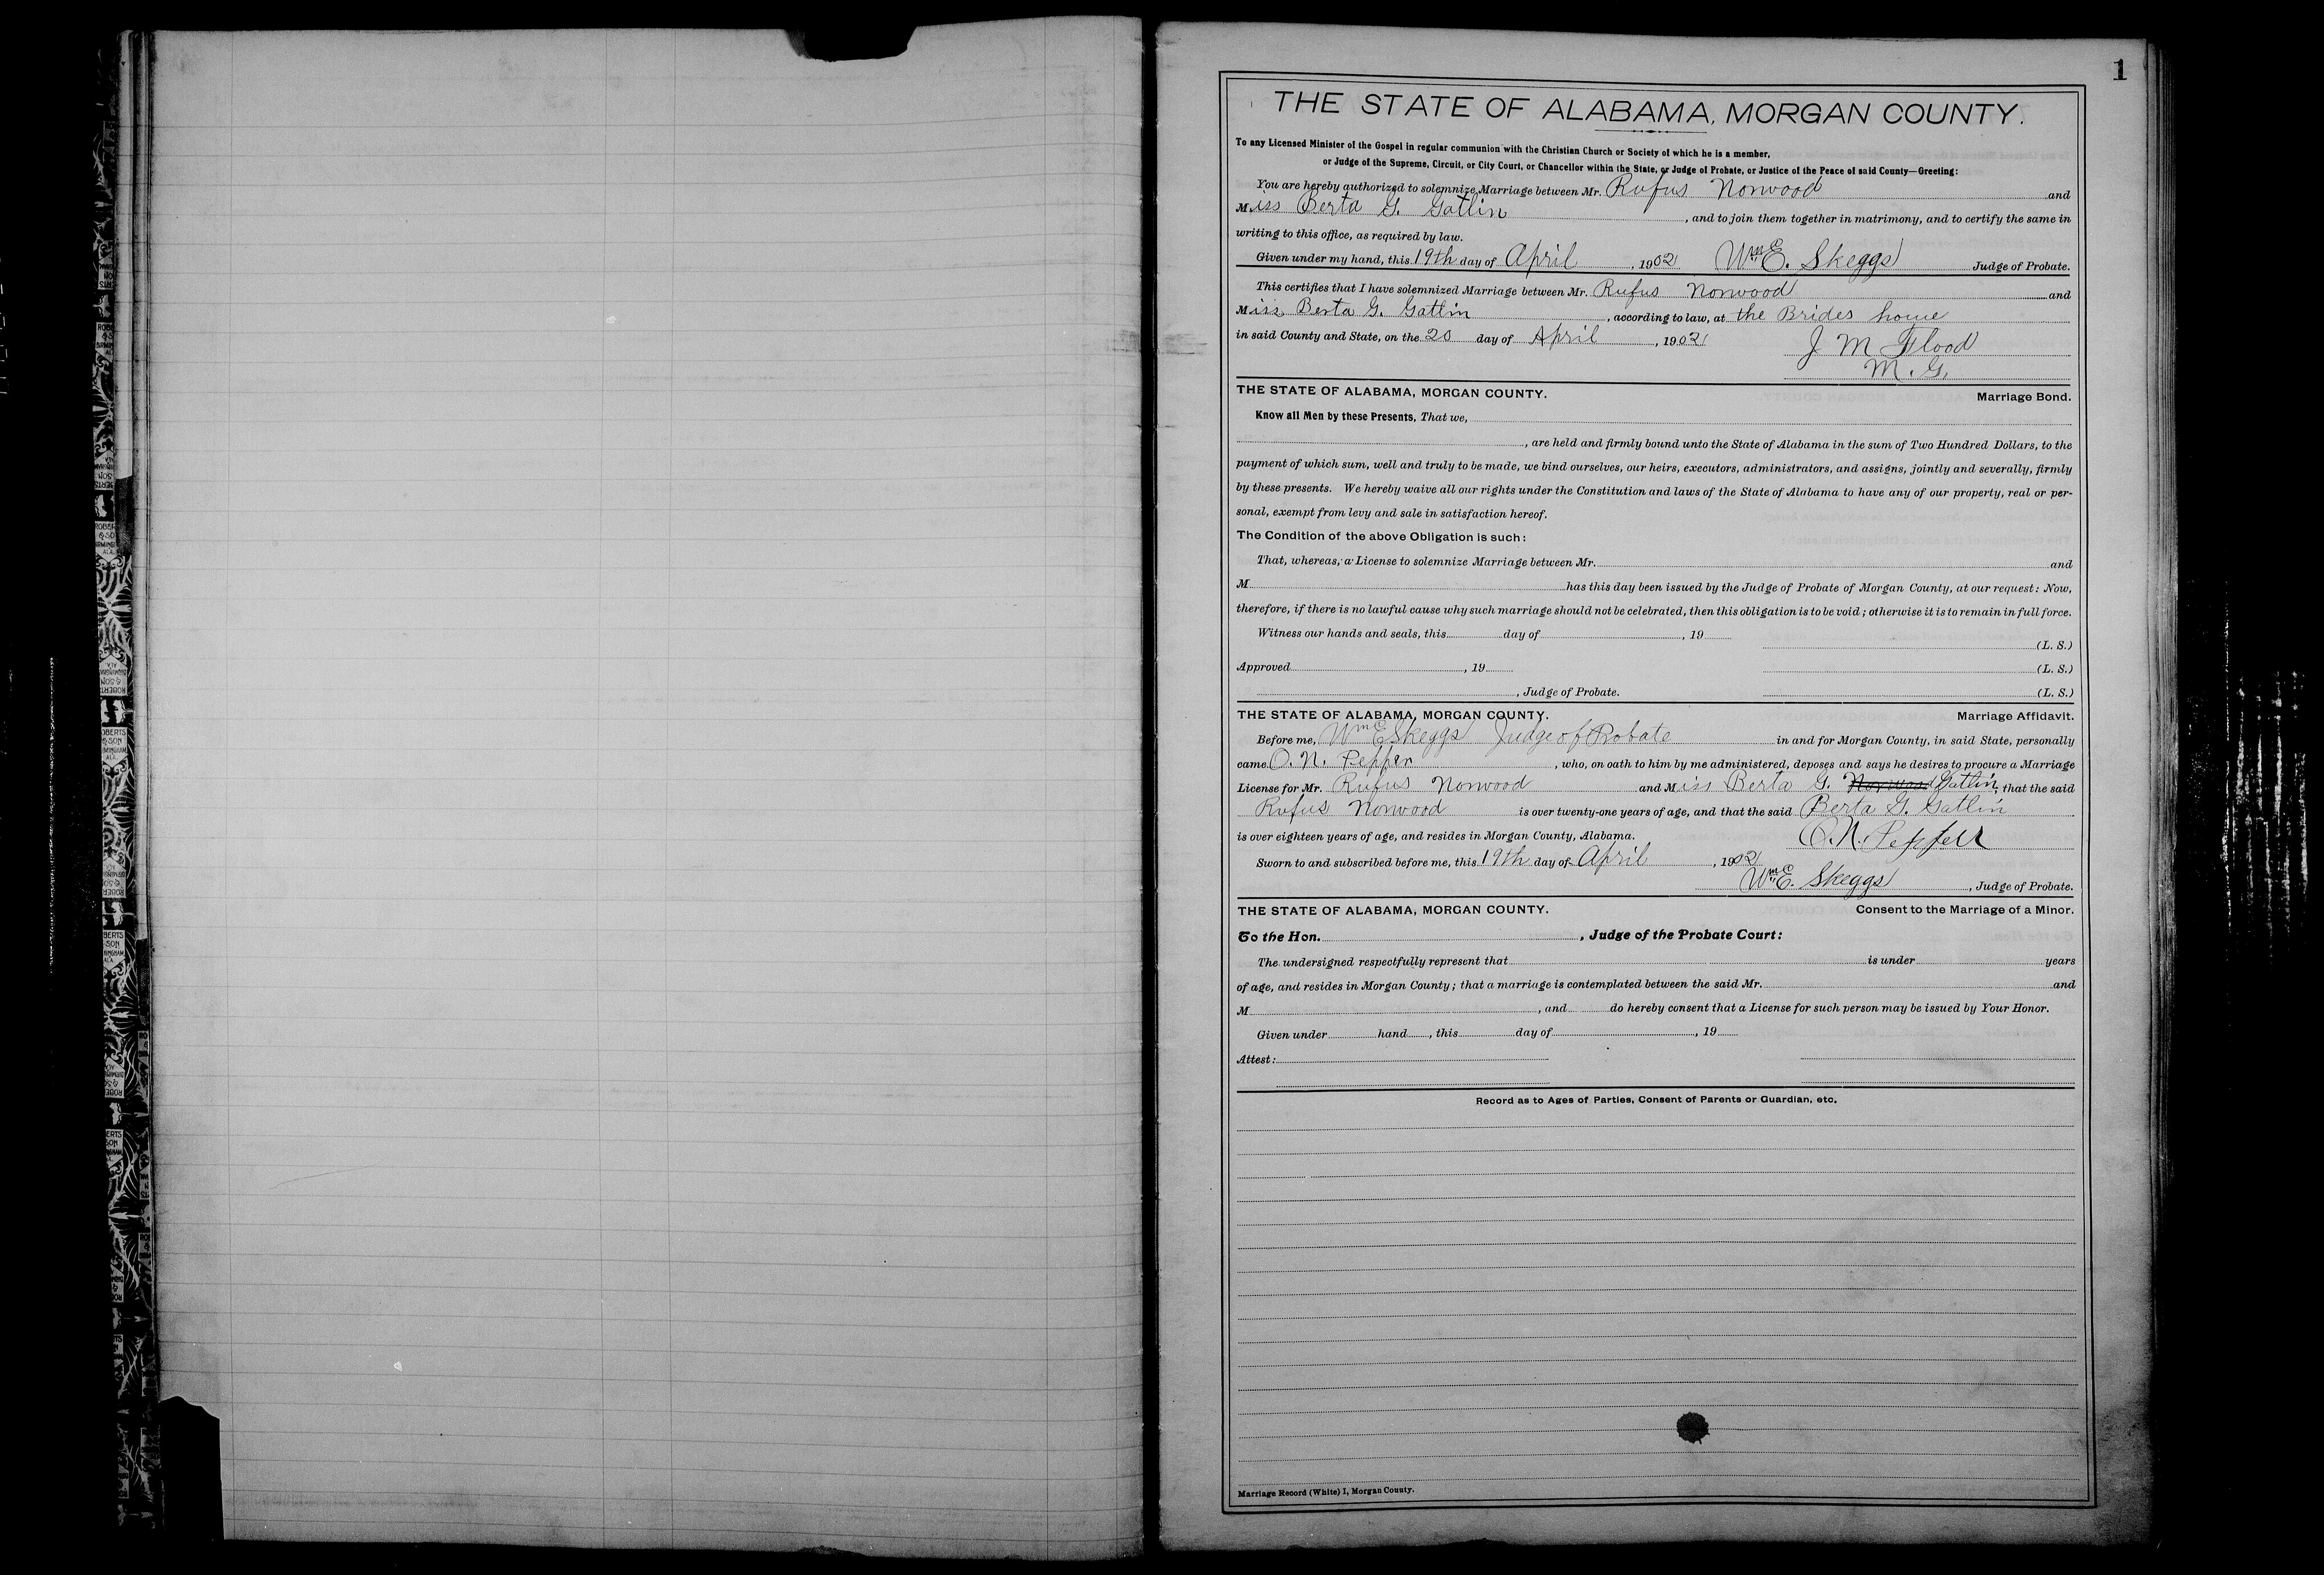 1
THE STATE OF ALABAMA, MORGAN COUNTY.
To any Licensed Minister of the Gospel in regular communion with the Christian Church or Society of which he is a member,
or Judge of the Supreme, Circuit, or City Court, or Chancellor within the State, or Judge of Probate, or Justice of the Peace of said County—Greeting:
You are hereby authorized to solemnize Marriage between Mr. Rufus Norwood and
Miss Berta G. Gatlin, and to join them together in matrimony, and to certify the same in
writing to this office, as required by law.
Given under my hand, this 19th day of April, 1902 Wm E. Skeggs Judge of Probate.
This certifies that I have solemnized Marriage between Mr. Rufus Norwood and
Miss Berta G. Gatlin, according to law, at the Brides home
in said County and State, on the 20 day of April, 1902 J M Flood
M. G.
THE STATE OF ALABAMA, MORGAN COUNTY. Marriage Bond.
Know all Men by these Presents, That we,
, are held and firmly bound unto the State of Alabama in the sum of Two Hundred Dollars, to the
payment of which sum, well and truly to be made, we bind ourselves, our heirs, executors, administrators, and assigns, jointly and severally, firmly
by these presents. We hereby waive all our rights under the Constitution and laws of the State of Alabama to have any of our property, real or per-
sonal, exempt from levy and sale in satisfaction hereof.
The Condition of the above Obligation is such:
That, whereas, a License to solemnize Marriage between Mr. and
M has this day been issued by the Judge of Probate of Morgan County, at our request: Now,
therefore, if there is no lawful cause why such marriage should not be celebrated, then this obligation is to be void; otherwise it is to remain in full force.
Witness our hands and seals, this day of , 19
(L. S.)
Approved , 19 (L. S.)
, Judge of Probate. (L. S.)
THE STATE OF ALABAMA, MORGAN COUNTY. Marriage Affidavit.
Before me, Wm E Skeggs Judge of Probate in and for Morgan County, in said State, personally
came O. N. Pepper, who, on oath to him by me administered, deposes and says he desires to procure a Marriage
License for Mr. Rufus Norwood and Miss Berta G. Norwood Gatlin, that the said
Rufus Norwood is over twenty-one years of age, and that the said Berta G. Gatlin
is over eighteen years of age, and resides in Morgan County, Alabama. O. N. Pepper
Sworn to and subscribed before me, this 19th day of April, 1902
Wm E. Skeggs, Judge of Probate.
THE STATE OF ALABAMA, MORGAN COUNTY. Consent to the Marriage of a Minor.
To the Hon. , Judge of the Probate Court:
The undersigned respectfully represent that is under years
of age, and resides in Morgan County; that a marriage is contemplated between the said Mr. and
M , and do hereby consent that a License for such person may be issued by Your Honor.
Given under hand , this day of , 19
Attest:
Record as to Ages of Parties, Consent of Parents or Guardian, etc.
Marriage Record (White) I, Morgan County.